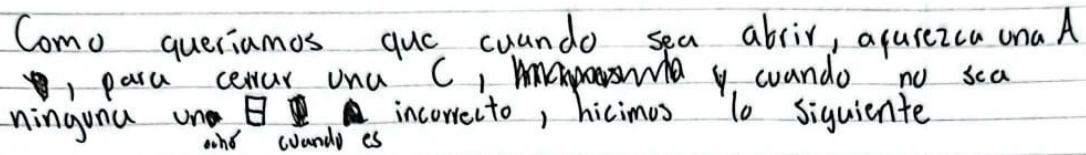 Como queríamos que cuando sea abrir, aparezca una A
, para cerrar una C, y cuando no sea
ninguna una 8 incorrecto, hicimos lo siguiente
ocho cuando es